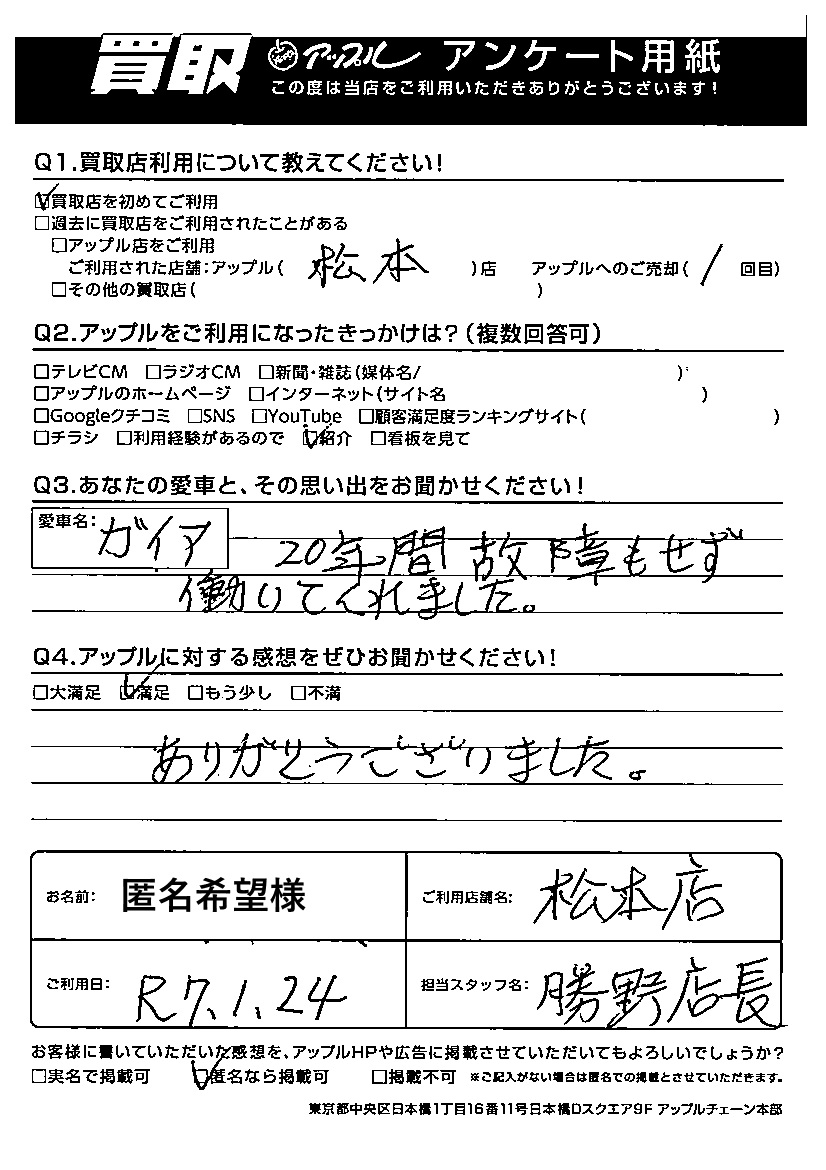 買取 アップル アンケート用紙
この度は当店をご利用いただきありがとうございます!
Q1.買取店利用について教えてください!
☑買取店を初めてご利用
□過去に買取店をご利用されたことがある
□アップル店をご利用
ご利用された店舗:アップル( 松本 )店 アップルへのご売却( 1 回目)
□その他の買取店( )
Q2.アップルをご利用になったきっかけは?(複数回答可)
□テレビCM □ラジオCM □新聞・雑誌(媒体名/ )
□アップルのホームページ □インターネット(サイト名 )
□Googleクチコミ □SNS □YouTube □顧客満足度ランキングサイト( )
□チラシ □利用経験があるので ☑紹介 □看板を見て
Q3.あなたの愛車と、その思い出をお聞かせください!
愛車名: ガイア 20年間故障もせず
働いてくれました。
Q4.アップルに対する感想をぜひお聞かせください!
□大満足 ☑満足 □もう少し □不満
ありがとうございました。
お名前: 匿名希望様 ご利用店舗名: 松本店
ご利用日: R7.1.24 担当スタッフ名: 勝野店長
お客様に書いていただいた感想を、アップルHPや広告に掲載させていただいてもよろしいでしょうか?
□実名で掲載可 ☑匿名なら掲載可 □掲載不可 ※ご記入がない場合は匿名での掲載とさせていただきます。
東京都中央区日本橋1丁目16番11号日本橋Dスクエア9F アップルチェーン本部